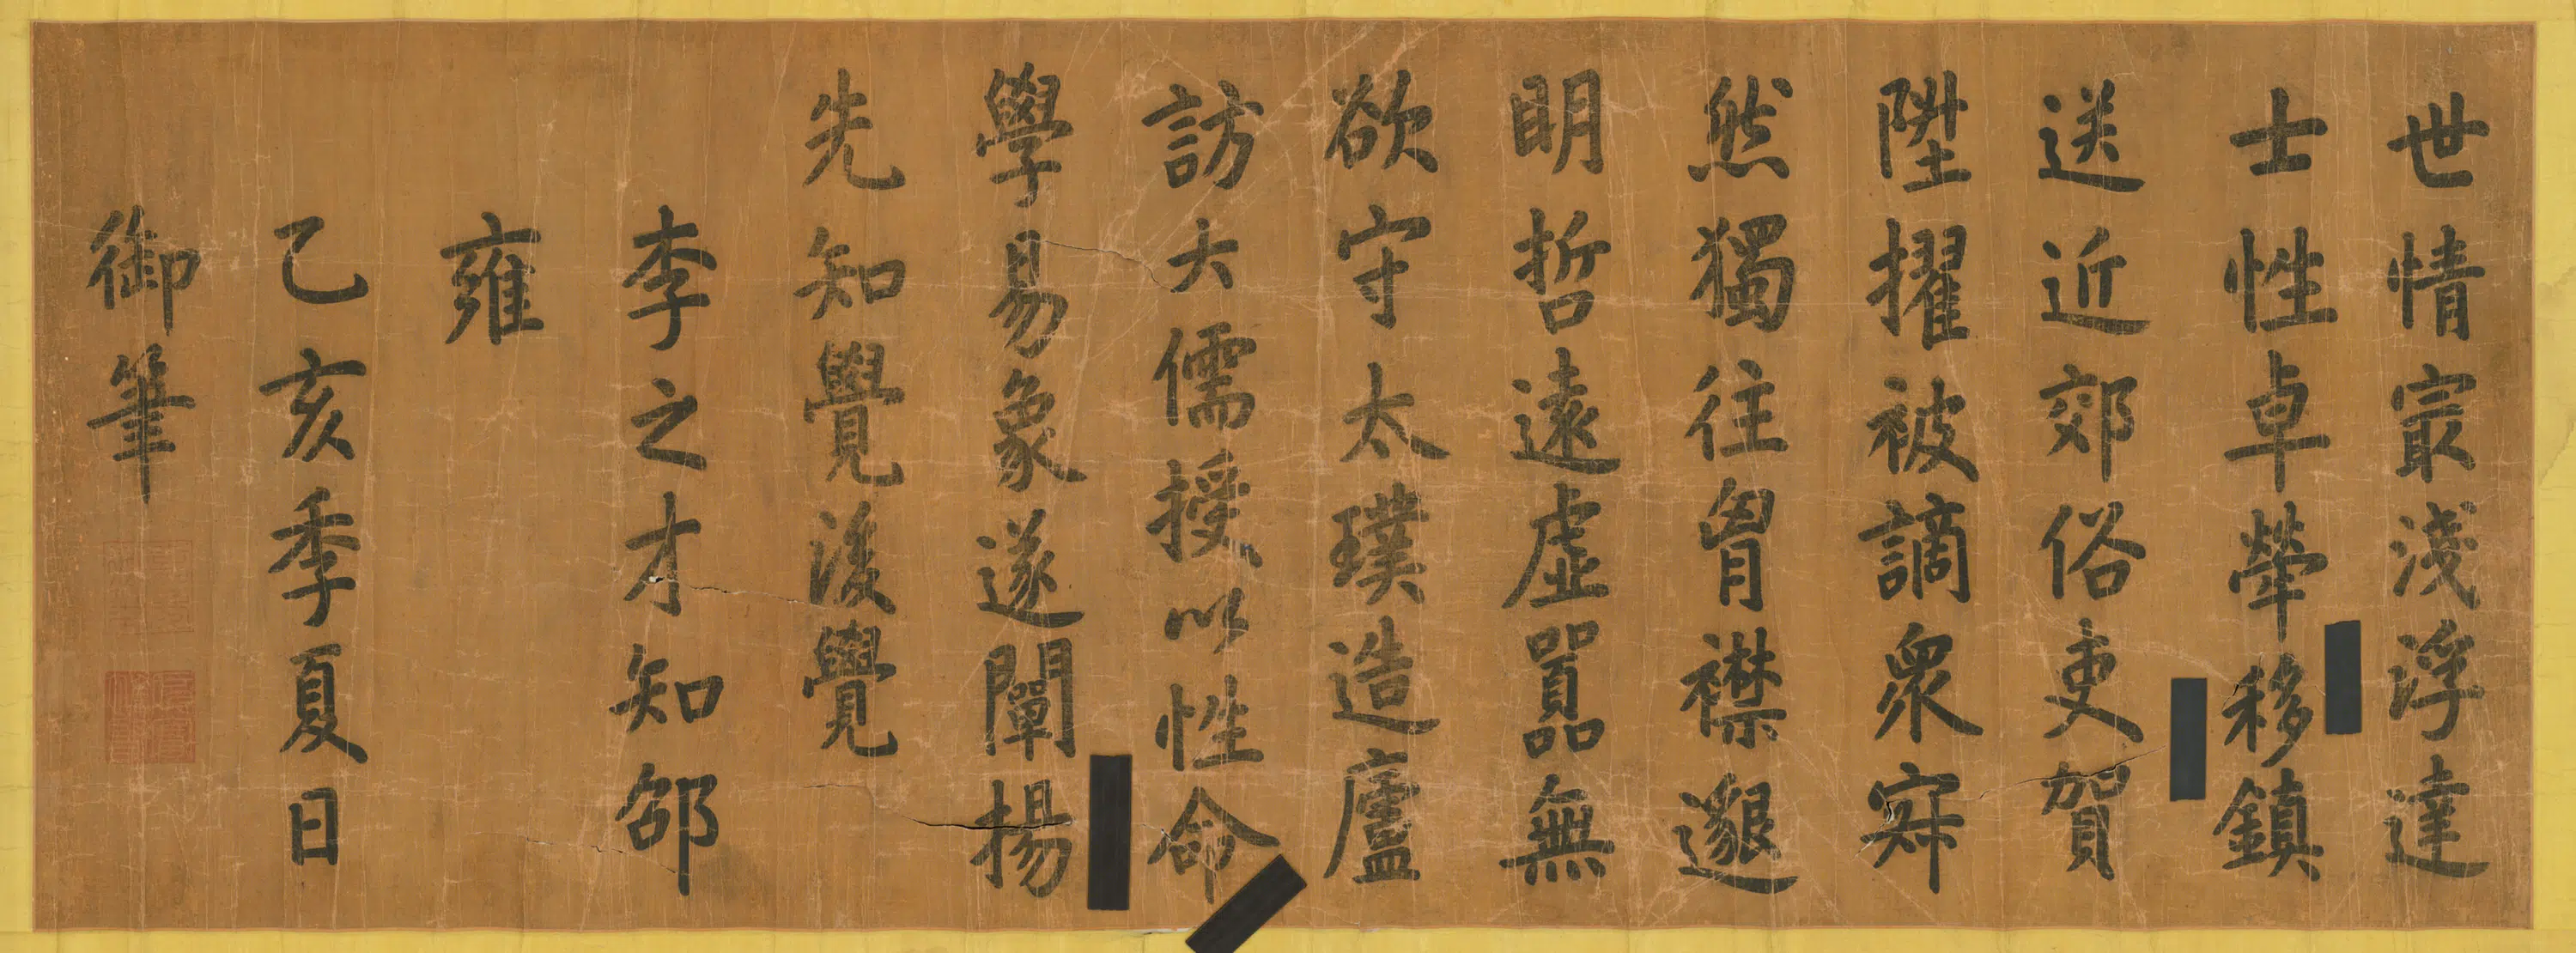 世情冣淺浮達
士性卓犖移鎮
送近郊俗吏賀
陞擢被謫衆寀
然獨往胷襟邈
明哲遠虛囂無
欲守太璞造廬
訪大儒授以性命
學易象遂闡揚
先知覺後覺
李之才知邵
雍
乙亥季夏日
御筆